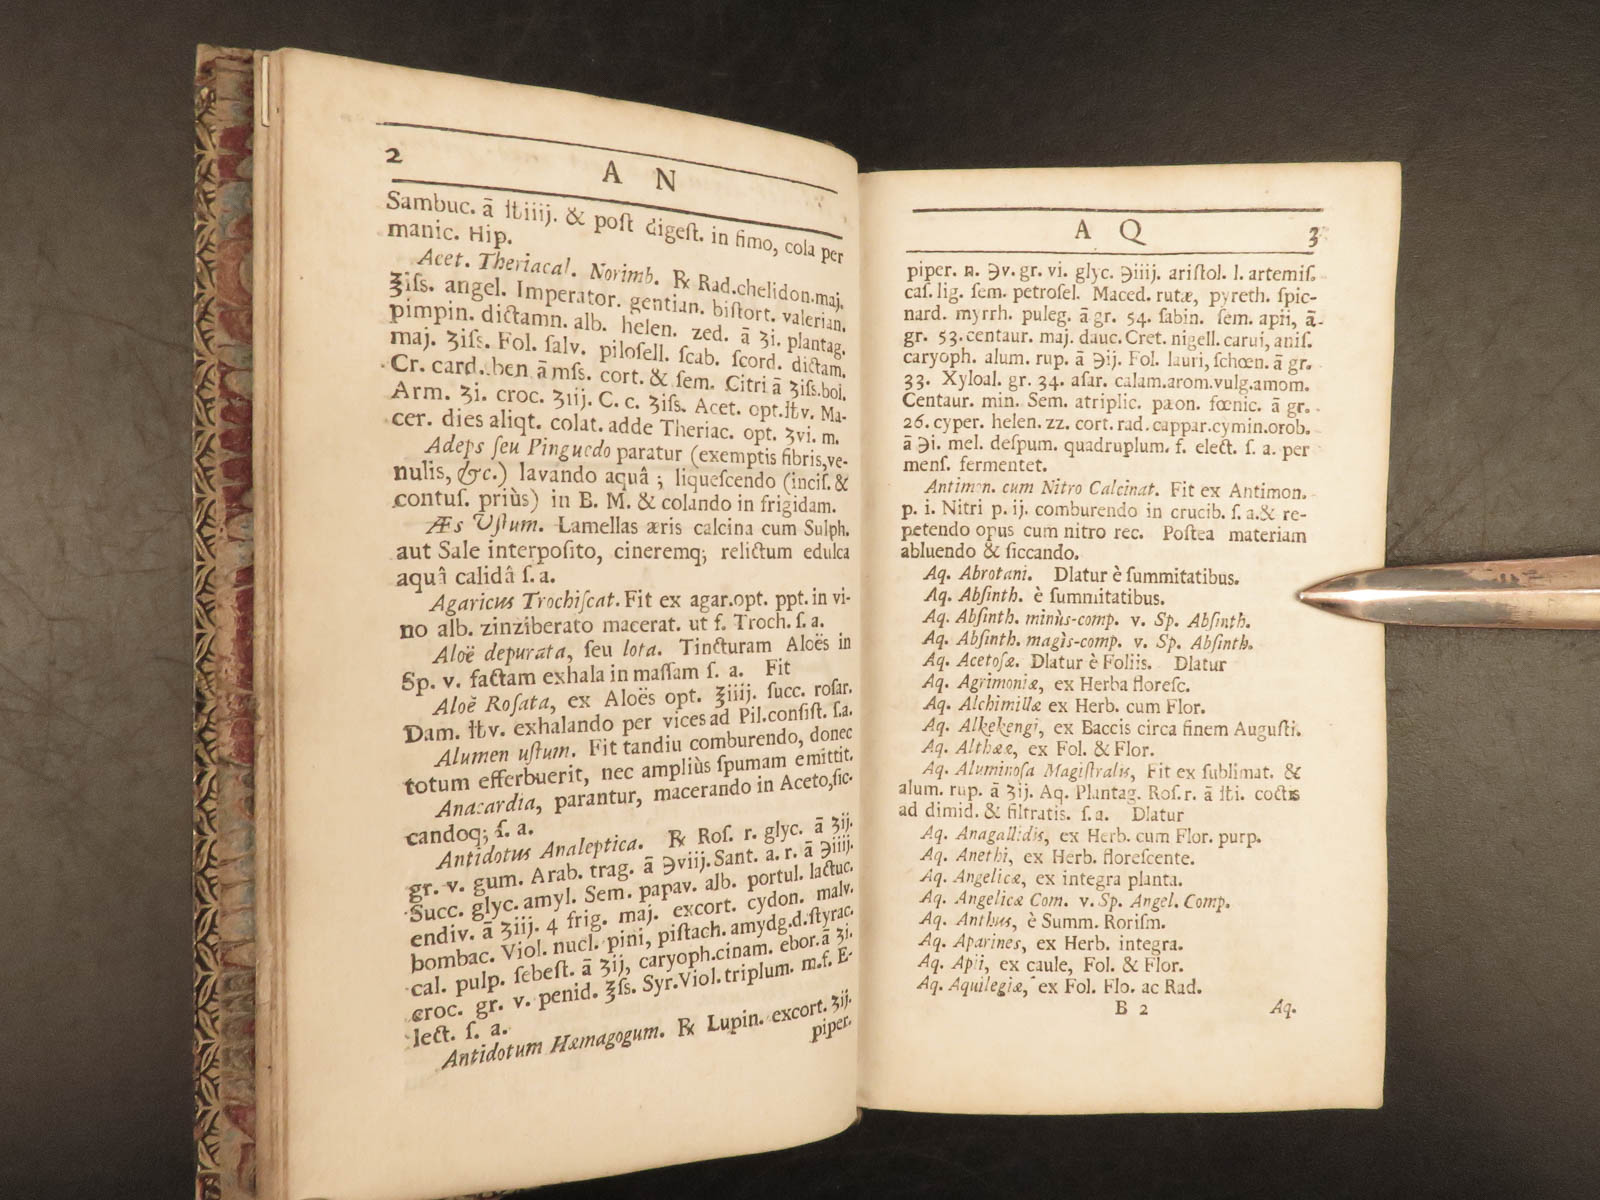 2
A N
Sambuc. ā ℔iiij. & poſt digeſt. in fimo, cola per
manic. Hip.
Acet. Theriacal. Norimb. ℞ Rad.chelidon.maj.
ʒiſs. angel. Imperator. gentian. biſtort. valerian.
pimpin. dictamn. alb. helen. zed. ā ʒi. plantag.
maj. ʒiſs. Fol. ſalv. piloſell. ſcab. ſcord. dictam.
Cr. card. ben ā mſs. cort. & ſem. Citri ā ʒiſs.bol.
Arm. ʒi. croc. ʒiij. C. c. ʒiſs. Acet. opt.℔v. Ma-
cer. dies aliqt. colat. adde Theriac. opt. ʒvi. m.
Adeps ſeu Pinguedo paratur (exemptis fibris,ve-
nulis, &c.) lavando aquâ ; liqueſcendo (inciſ. &
contuſ. priùs) in B. M. & colando in frigidam.
Æs Uſtum. Lamellas æris calcina cum Sulph.
aut Sale interpoſito, cineremq; relictum edulca
aquâ calidâ ſ. a.
Agaricus Trochiſcat. Fit ex agar.opt. ppt. in vi-
no alb. zinziberato macerat. ut f. Troch. ſ. a.
Aloë depurata, ſeu lota. Tincturam Aloës in
Sp. v. factam exhala in maſſam ſ. a. Fit
Aloë Roſata, ex Aloës opt. ℥iiij. ſucc. roſar.
Dam. ℔v. exhalando per vices ad Pil.conſiſt. ſ.a.
Alumen uſtum. Fit tandiu comburendo, donec
totum efferbuerit, nec ampliùs ſpumam emittit.
Anacardia, parantur, macerando in Aceto,ſic-
candoq; ſ. a.
Antidotus Analeptica. ℞ Roſ. r. glyc. ā ʒij.
gr. v. gum. Arab. trag. ā ℈viij. Sant. a. r. ā ℈iiij.
Succ. glyc. amyl. Sem. papav. alb. portul. lactuc.
endiv. ā ʒiij. 4 frig. maj. excort. cydon. malv.
bombac. Viol. nucl. pini, piſtach. amydg.d.ſtyrac.
cal. pulp. ſebeſt. ā ʒij, caryoph.cinam. ebor.ā ʒi.
croc. gr. v. penid. ℥ſs. Syr.Viol.triplum. m.f. E-
lect. ſ. a.
Antidotum Hæmagogum. ℞ Lupin. excort. ʒij.
piper.
A Q
3
piper. n. ℈v. gr. vi. glyc. ℈iiij. ariſtol. l. artemiſ.
caſ. lig. ſem. petroſel. Maced. rutæ, pyreth. ſpic-
nard. myrrh. puleg. ā gr. 54. ſabin. ſem. apii, ā
gr. 53. centaur. maj. dauc. Cret. nigell. carui, aniſ.
caryoph. alum. rup. ā ℈ij. Fol. lauri, ſchœn. ā gr.
33. Xyloal. gr. 34. aſar. calam.arom.vulg.amom.
Centaur. min. Sem. atriplic. pæon. fœnic. ā gr.
26. cyper. helen. zz. cort. rad. cappar.cymin.orob.
ā ℈i. mel. deſpum. quadruplum. f. elect. ſ. a. per
menſ. fermentet.
Antimon. cum Nitro Calcinat. Fit ex Antimon.
p. i. Nitri p. ij. comburendo in crucib. ſ. a.& re-
petendo opus cum nitro rec. Poſtea materiam
abluendo & ſiccando.
Aq. Abrotani. Dlatur è ſummitatibus.
Aq. Abſinth. è ſummitatibus.
Aq. Abſinth. minùs-comp. v. Sp. Abſinth.
Aq. Abſinth. magìs-comp. v. Sp. Abſinth.
Aq. Acetoſæ. Dlatur è Foliis. Dlatur
Aq. Agrimoniæ, ex Herba floreſc.
Aq. Alchimillæ ex Herb. cum Flor.
Aq. Alkekengi, ex Baccis circa finem Auguſti.
Aq. Althææ, ex Fol. & Flor.
Aq. Aluminoſa Magiſtralis, Fit ex ſublimat. &
alum. rup. ā ʒij. Aq. Plantag. Roſ. r. ā ℔i. coctis
ad dimid. & filtratis. ſ. a. Dlatur
Aq. Anagallidis, ex Herb. cum Flor. purp.
Aq. Anethi, ex Herb. floreſcente.
Aq. Angelicæ, ex integra planta.
Aq. Angelicæ Com. v. Sp. Angel. Comp.
Aq. Anthus, è Summ. Roriſm.
Aq. Aparines, ex Herb. integra.
Aq. Apii, ex caule, Fol. & Flor.
Aq. Aquilegiæ, ex Fol. Flo. ac Rad.
B 2
Aq.